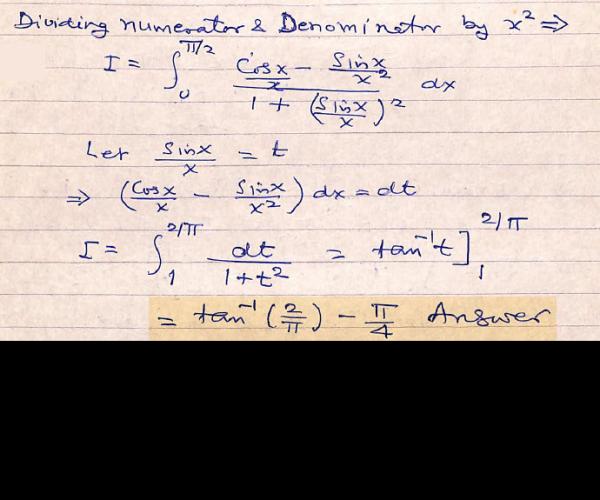 Dividing numerator & Denominator by x² ⇒
I = ∫₀^(π/2) (Cosx/x − Sinx/x²) / (1 + (Sinx/x)²) dx
Let Sinx/x = t
⇒ (Cosx/x − Sinx/x²) dx = dt
I = ∫₁^(2/π) dt/(1+t²) = tan⁻¹t]₁^(2/π)
= tan⁻¹(2/π) − π/4 Answer